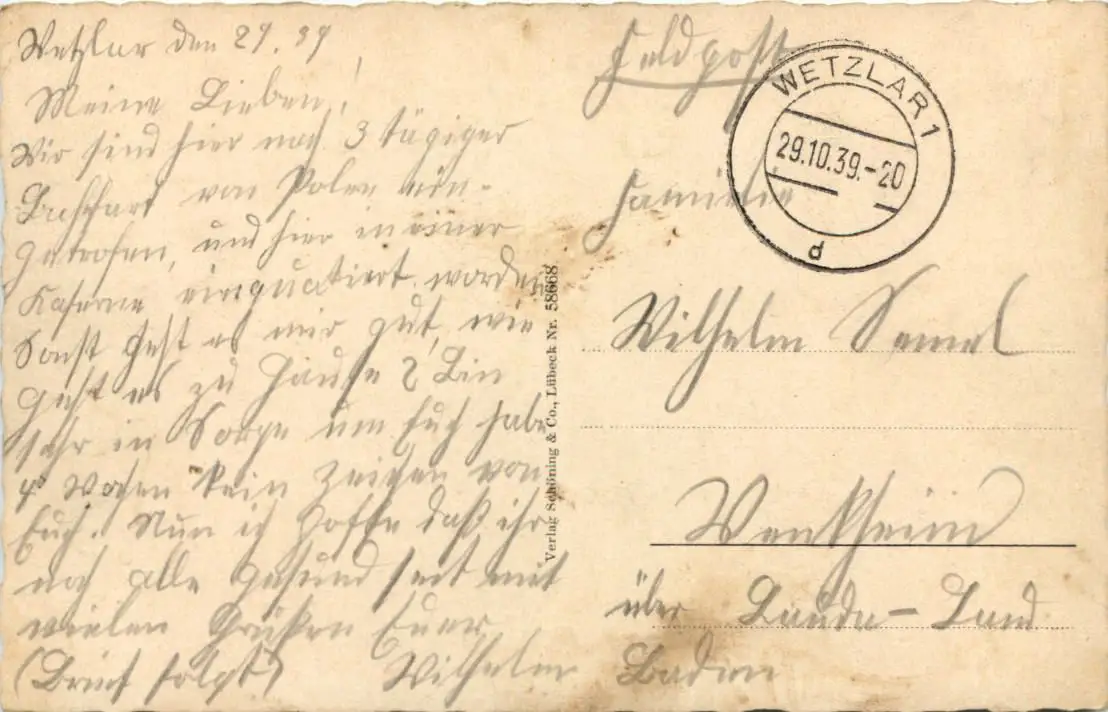 Wetzlar den 29. 39
Meine Lieben!
Wir sind hier nach 3 tägiger
Bahnfart von Polen ein-
getrofen, und hier in einer
Kaserne einquatiert worden
Sonst geht es mir gut, wie
geht es zu Hause? Bin
sehr in Sorge um Euch habe
4 Wochen kein Zeichen von
Euch. Nun ich hoffe daß ihr
noch alle gesund seit mit
vielen Grüßen Euer
(Brief folgt) Wilhelm
Verlag Schöning & Co., Lübeck Nr. 58668
Feldpost
WETZLAR 1
29.10.39.-20
d
Familie
Wilhelm
Wenkheim
über Lauda - Land
Baden